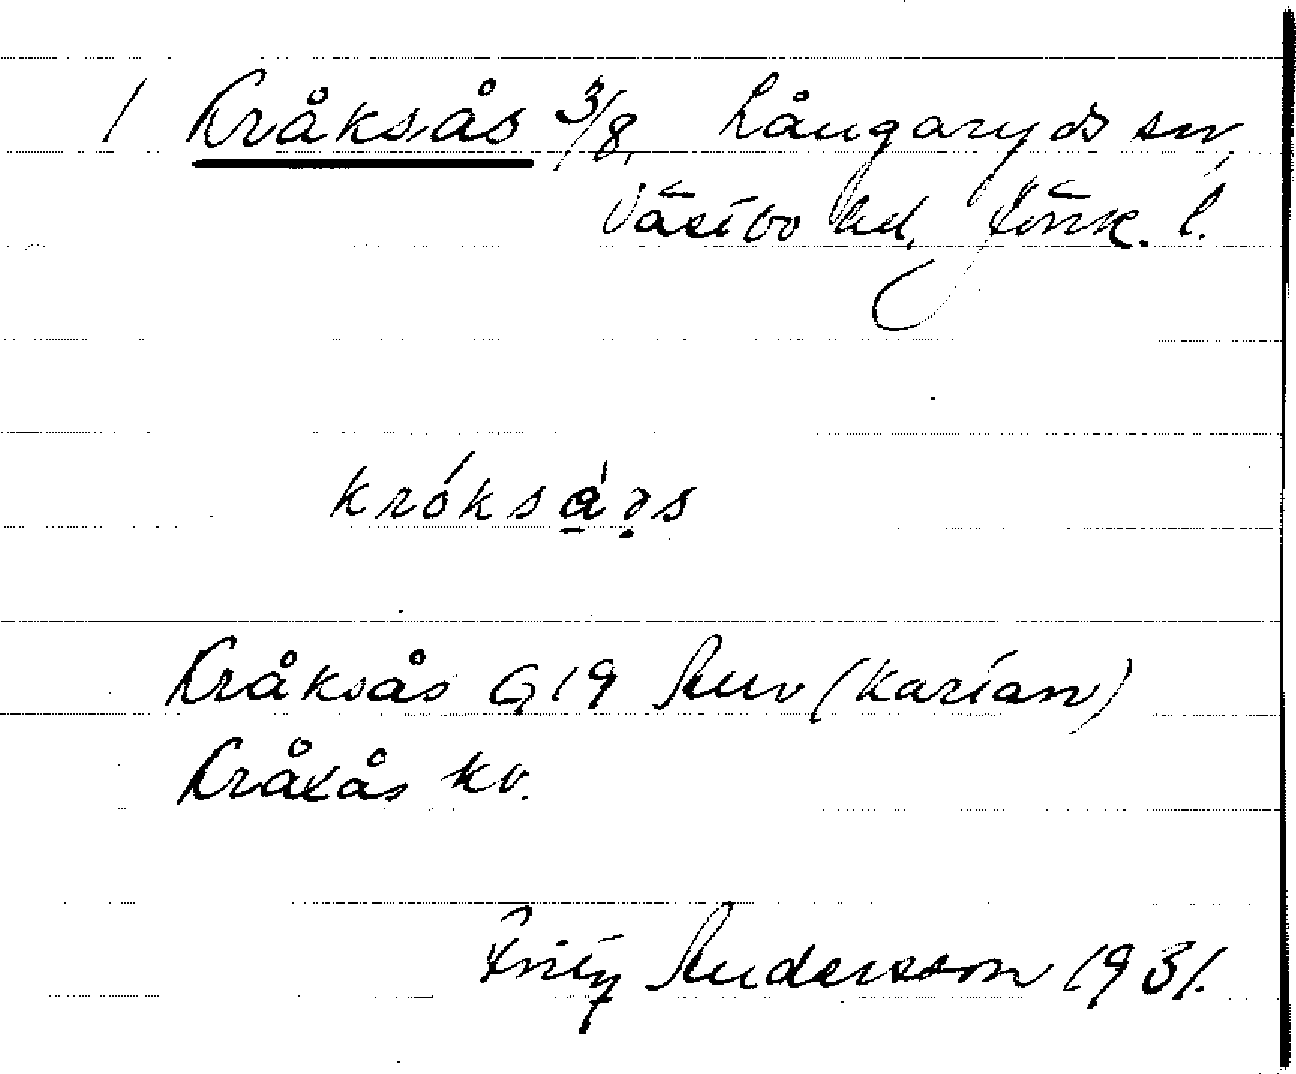 1 Kråksås 3/8, Långaryds sn,
Västbo hd, Jönk. l.
króksa̱'ə̣s
Kråksås G 19 Auv (kartan)
Kråkås kv.
Fritz Andersson 1931.